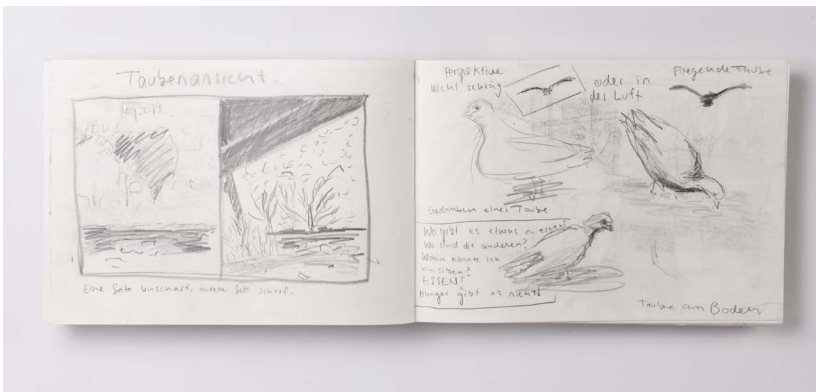 Taubenansicht
Eine Seite unscharf, andere Seite scharf.
Perspektive
leicht schräg
oder in
der Luft
Fliegende Taube
Gedanken einer Taube
Wo gibt es etwas zu essen?
Wo sind die anderen?
Wohin könnte ich
ESSEN?
gibt es nichts
Taube am Boden